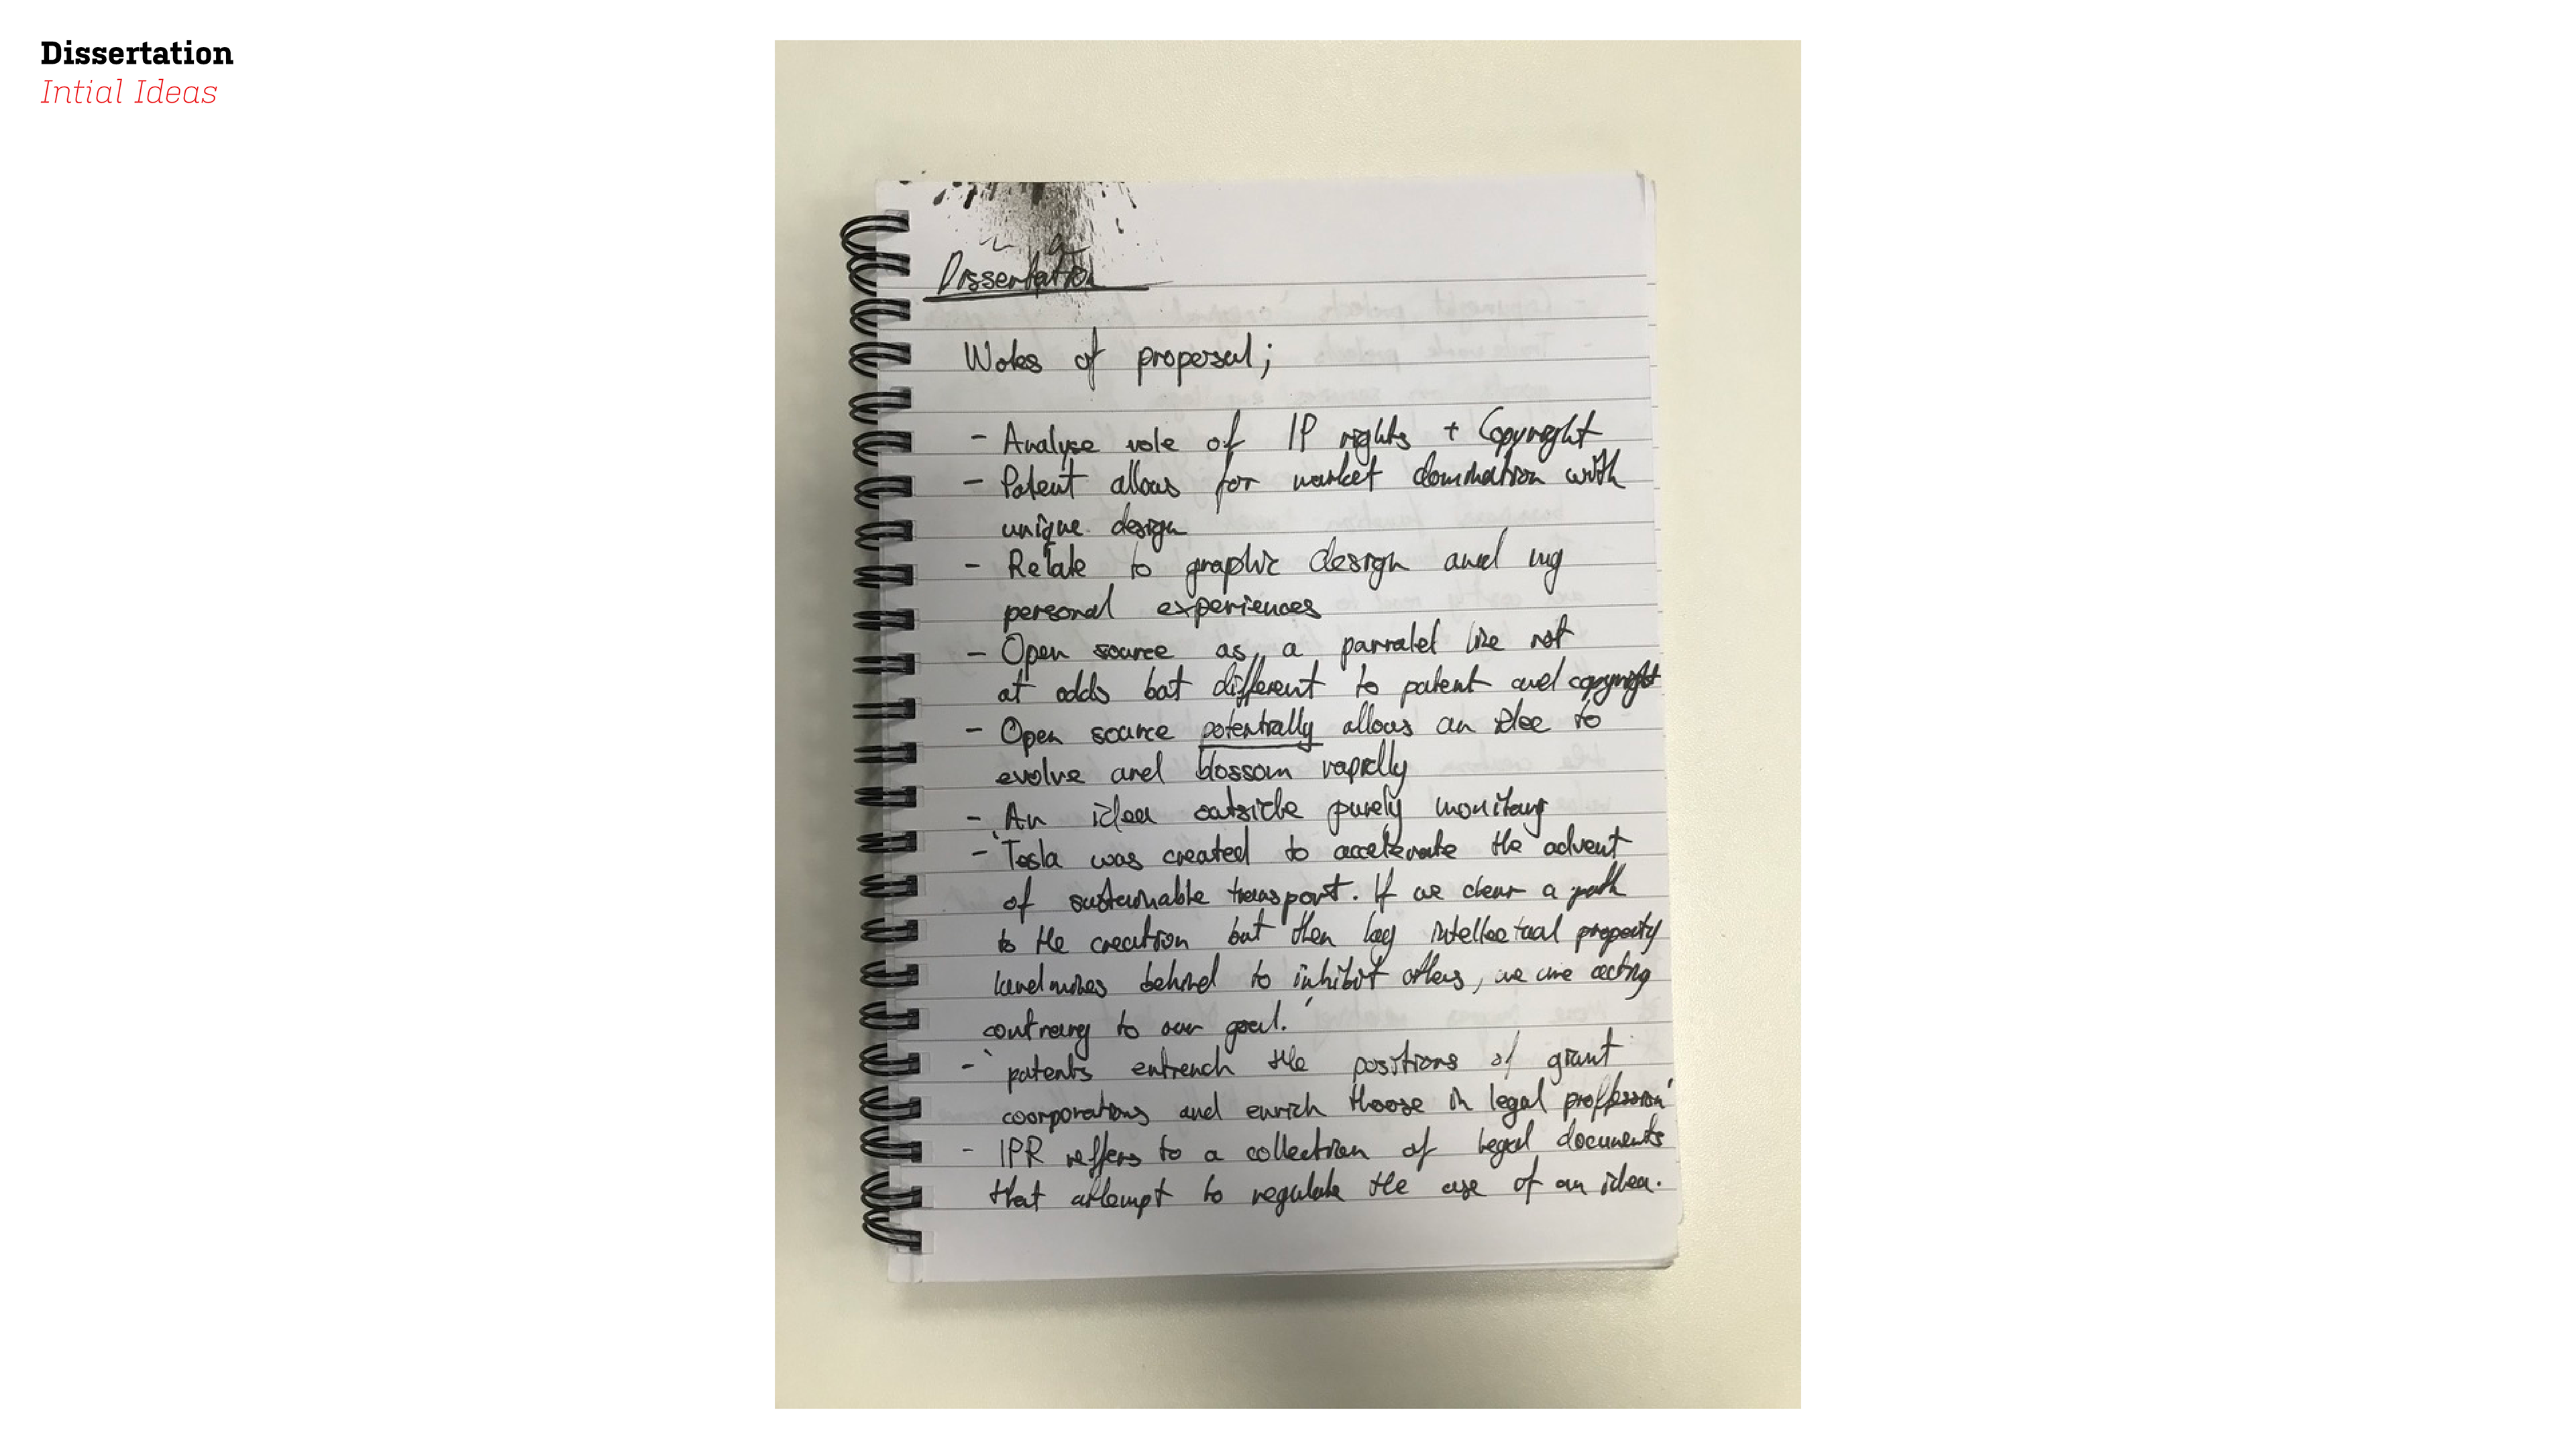 Dissertation
Intial Ideas
Dissertation
Notes of proposal;
- Analyse role of IP rights + Copyright
- Patent allows for market domination with
unique design
- Relate to graphic design and my
personal experiences
- Open source as a parralel line not
at odds but different to patent and copyright
- Open source potentially allows an idea to
evolve and blossom rapidly
- An idea outside purely monitary
- 'Tesla was created to accelerate the advent
of sustainable transport. If we clear a path
to the creation but then lay intellectual property
landmines behind to inhibit others, we are acting
contrary to our goal.'
- 'patents entrench the positions of giant
coorporations and enrich thoose in legal proffession'
- IPR reffers to a collection of legal documents
that attempt to regulate the use of an idea.